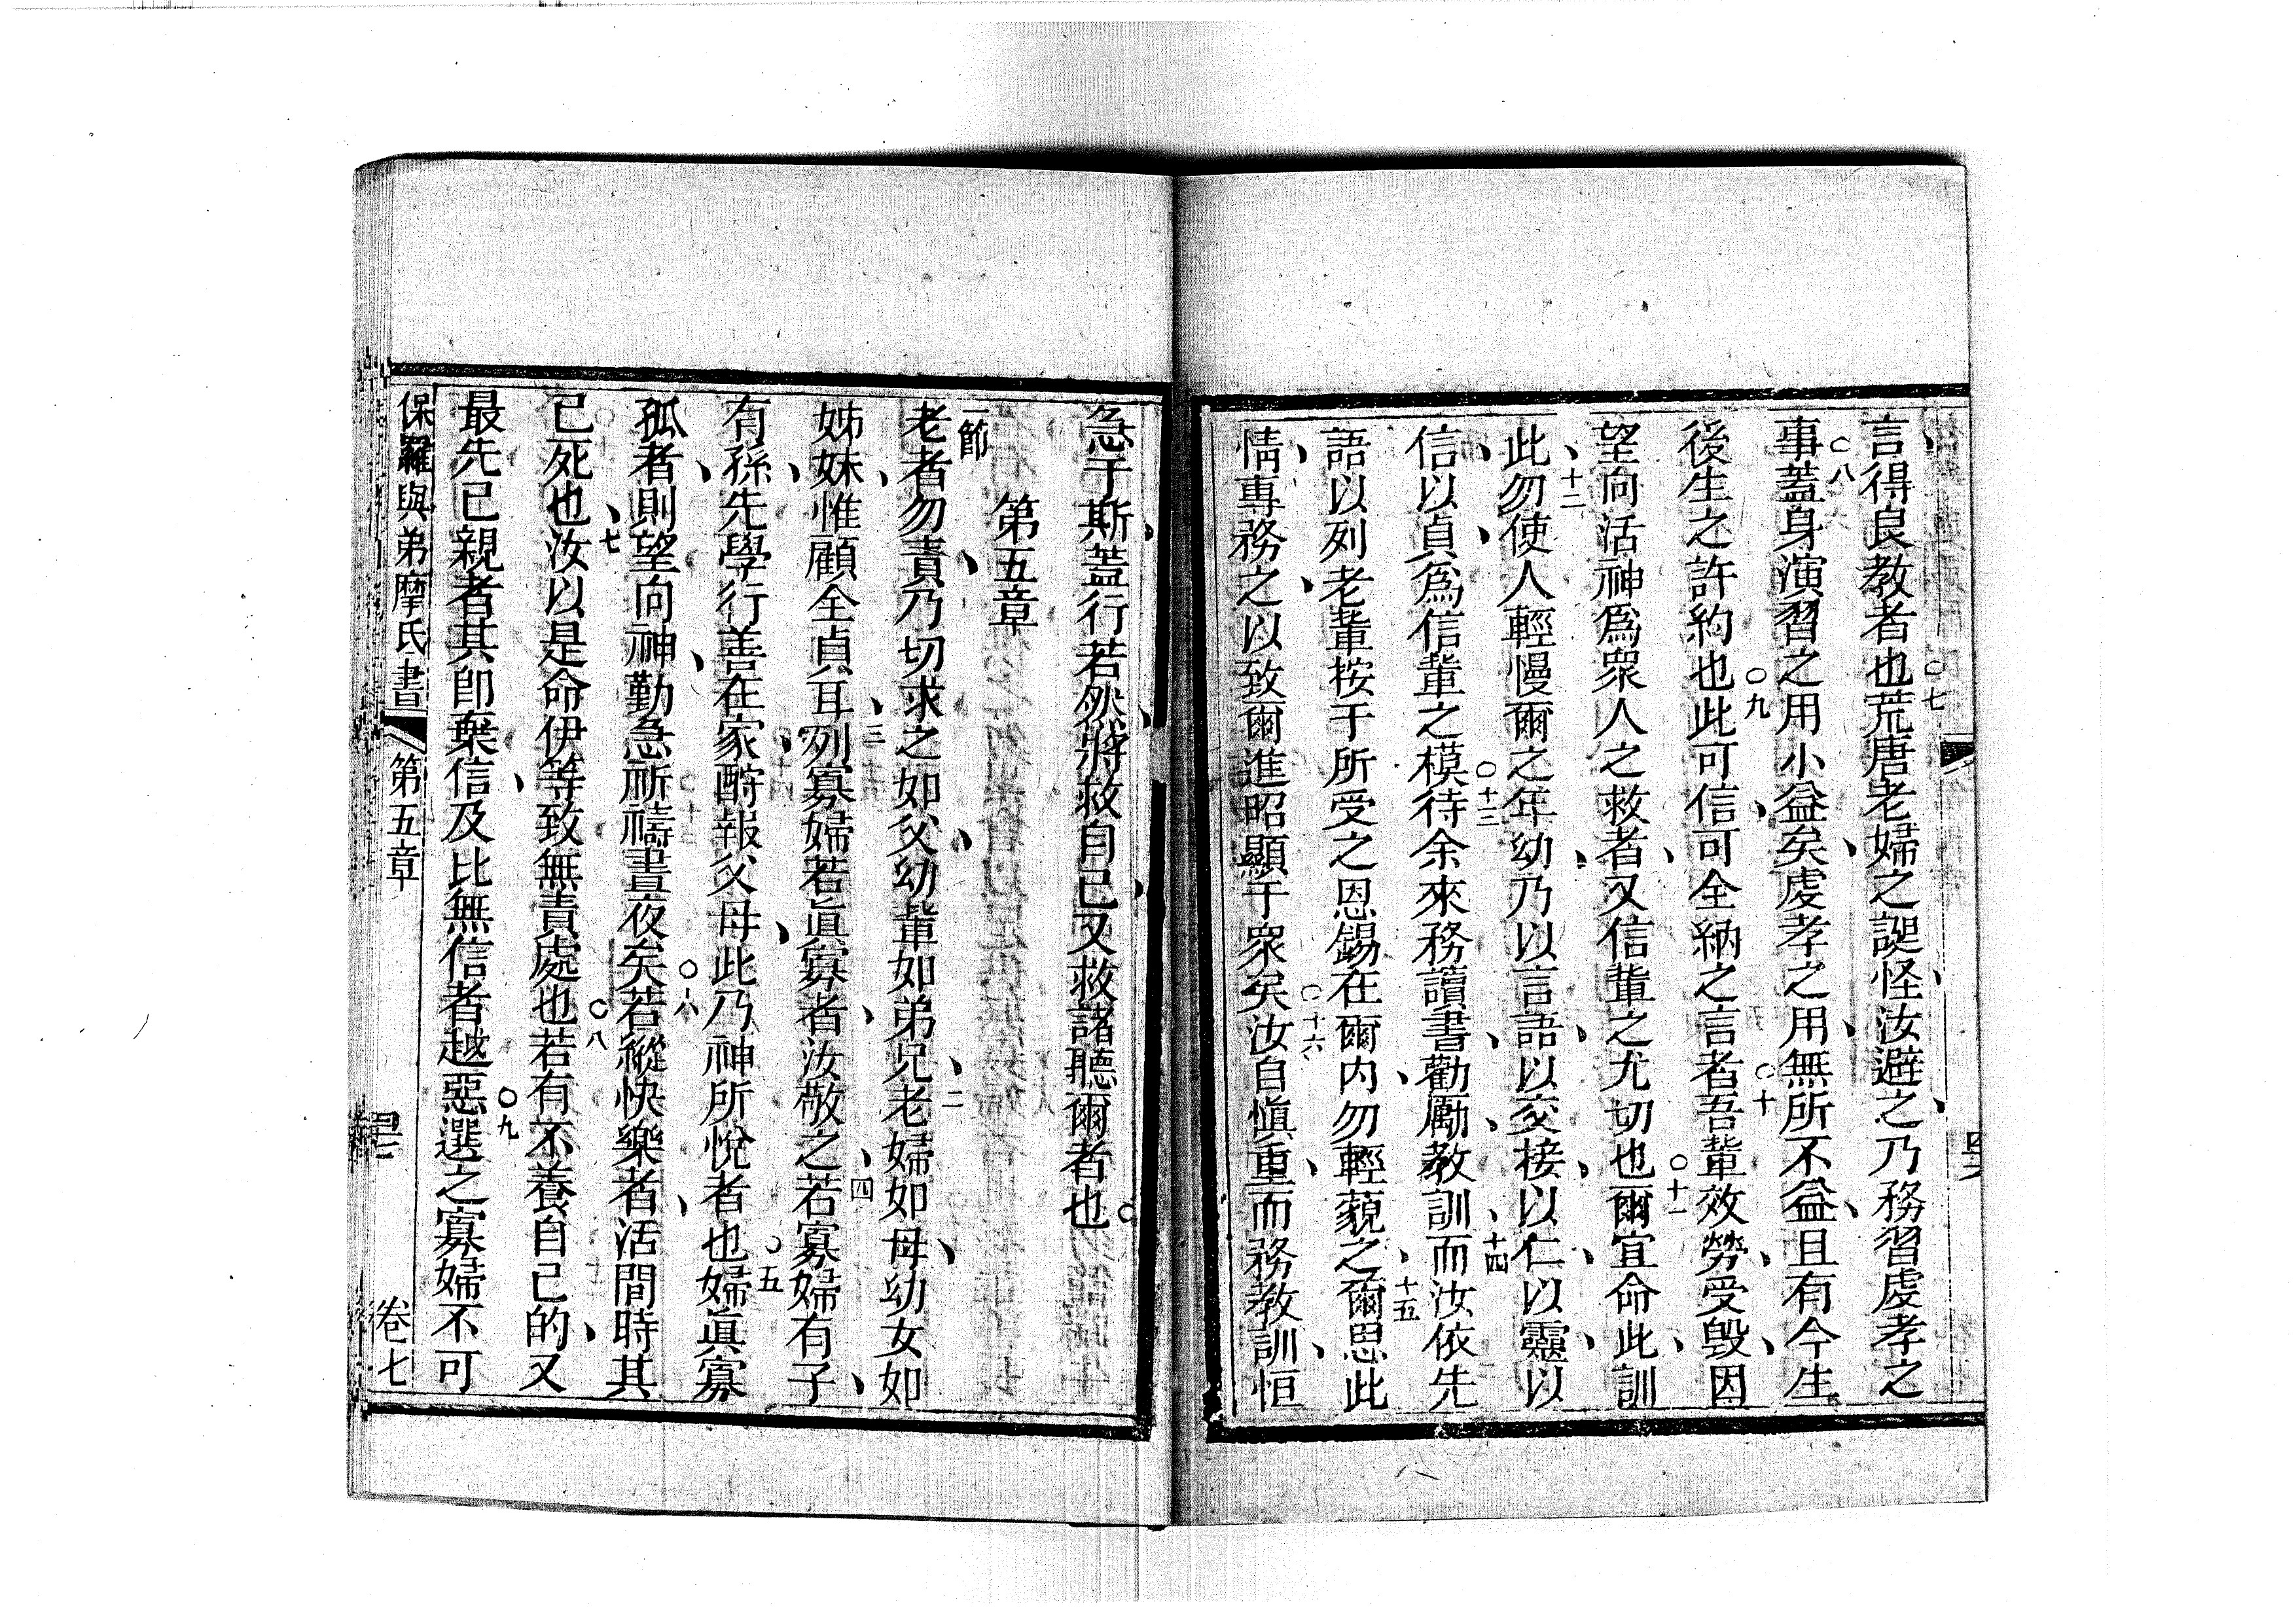 言得良教者也○七荒唐老婦之誕怪汝避之乃務習虔孝之
事○八蓋身演習之用小益矣虔孝之用無所不益且有今生
後生之許約也○九此可信可全納之言者○十吾輩效勞受毁因
望向活神爲眾人之救者又信輩之尤切也○十一爾宜命此訓
此十二勿使人輕慢爾之年幼乃以言語以交接以仁以靈以
信以貞爲信輩之模○十三待余來務讀書勸勵教訓十四而汝依先
語以列老輩按于所受之恩錫在爾内勿輕藐之十五爾思此
情專務之以致爾進昭顯于眾矣○十六汝自慎重而務教訓恒
急于斯蓋行若然將救自己又救諸聽爾者也○
第五章
一節
老者勿責乃切求之如父幼輩如弟兄二老婦如母幼女如
姊妹惟顧全貞耳三列寡婦若眞寡者汝敬之四若寡婦有子
有孫先學行善在家酧報父母此乃神所悅者也○五婦眞寡
孤者則望向神勤急祈禱晝夜矣○六若縱快樂者活間時其
已死也七汝以是命伊等致無責處也○八若有不養自己的又
最先已親者其即棄信及比無信者越惡○九選之寡婦不可
保羅與弟摩氏書 第五章 卷七